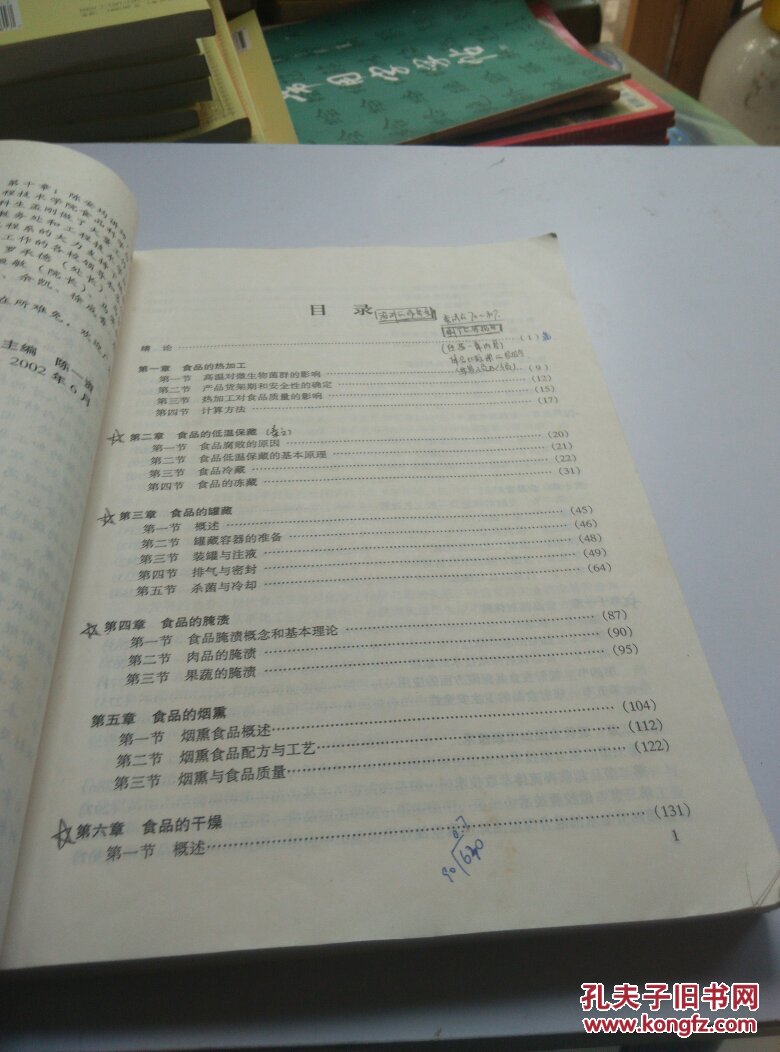 常用字字帖
第十章：陈
程技术学院食品科学
科生孟刚做了大量
教务处和工程技术
程系的大力支持
工作的各校领导
罗承德（处长）、马
敏（院长）、
、余凯、徐成
在所难免，欢迎广
主编 陈一资
2002年6月
目 录
绪 论 (1)
第一章 食品的热加工
第一节 高温对微生物菌群的影响 (9)
第二节 产品货架期和安全性的确定 (12)
第三节 热加工对食品质量的影响 (15)
第四节 计算方法 (17)
第二章 食品的低温保藏
第一节 食品腐败的原因 (20)
第二节 食品低温保藏的基本原理 (21)
第三节 食品冷藏 (22)
第四节 食品的冻藏 (31)
第三章 食品的罐藏
第一节 概述 (45)
第二节 罐藏容器的准备 (46)
第三节 装罐与注液 (48)
第四节 排气与密封 (49)
第五节 杀菌与冷却 (64)
第四章 食品的腌渍
第一节 食品腌渍概念和基本理论 (87)
第二节 肉品的腌渍 (90)
第三节 果蔬的腌渍 (95)
第五章 食品的烟熏
第一节 烟熏食品概述 (104)
第二节 烟熏食品配方与工艺 (112)
第三节 烟熏与食品质量 (122)
第六章 食品的干燥
第一节 概述 (131)
1
0.7
90 630
孔夫子旧书网
www.kongfz.com